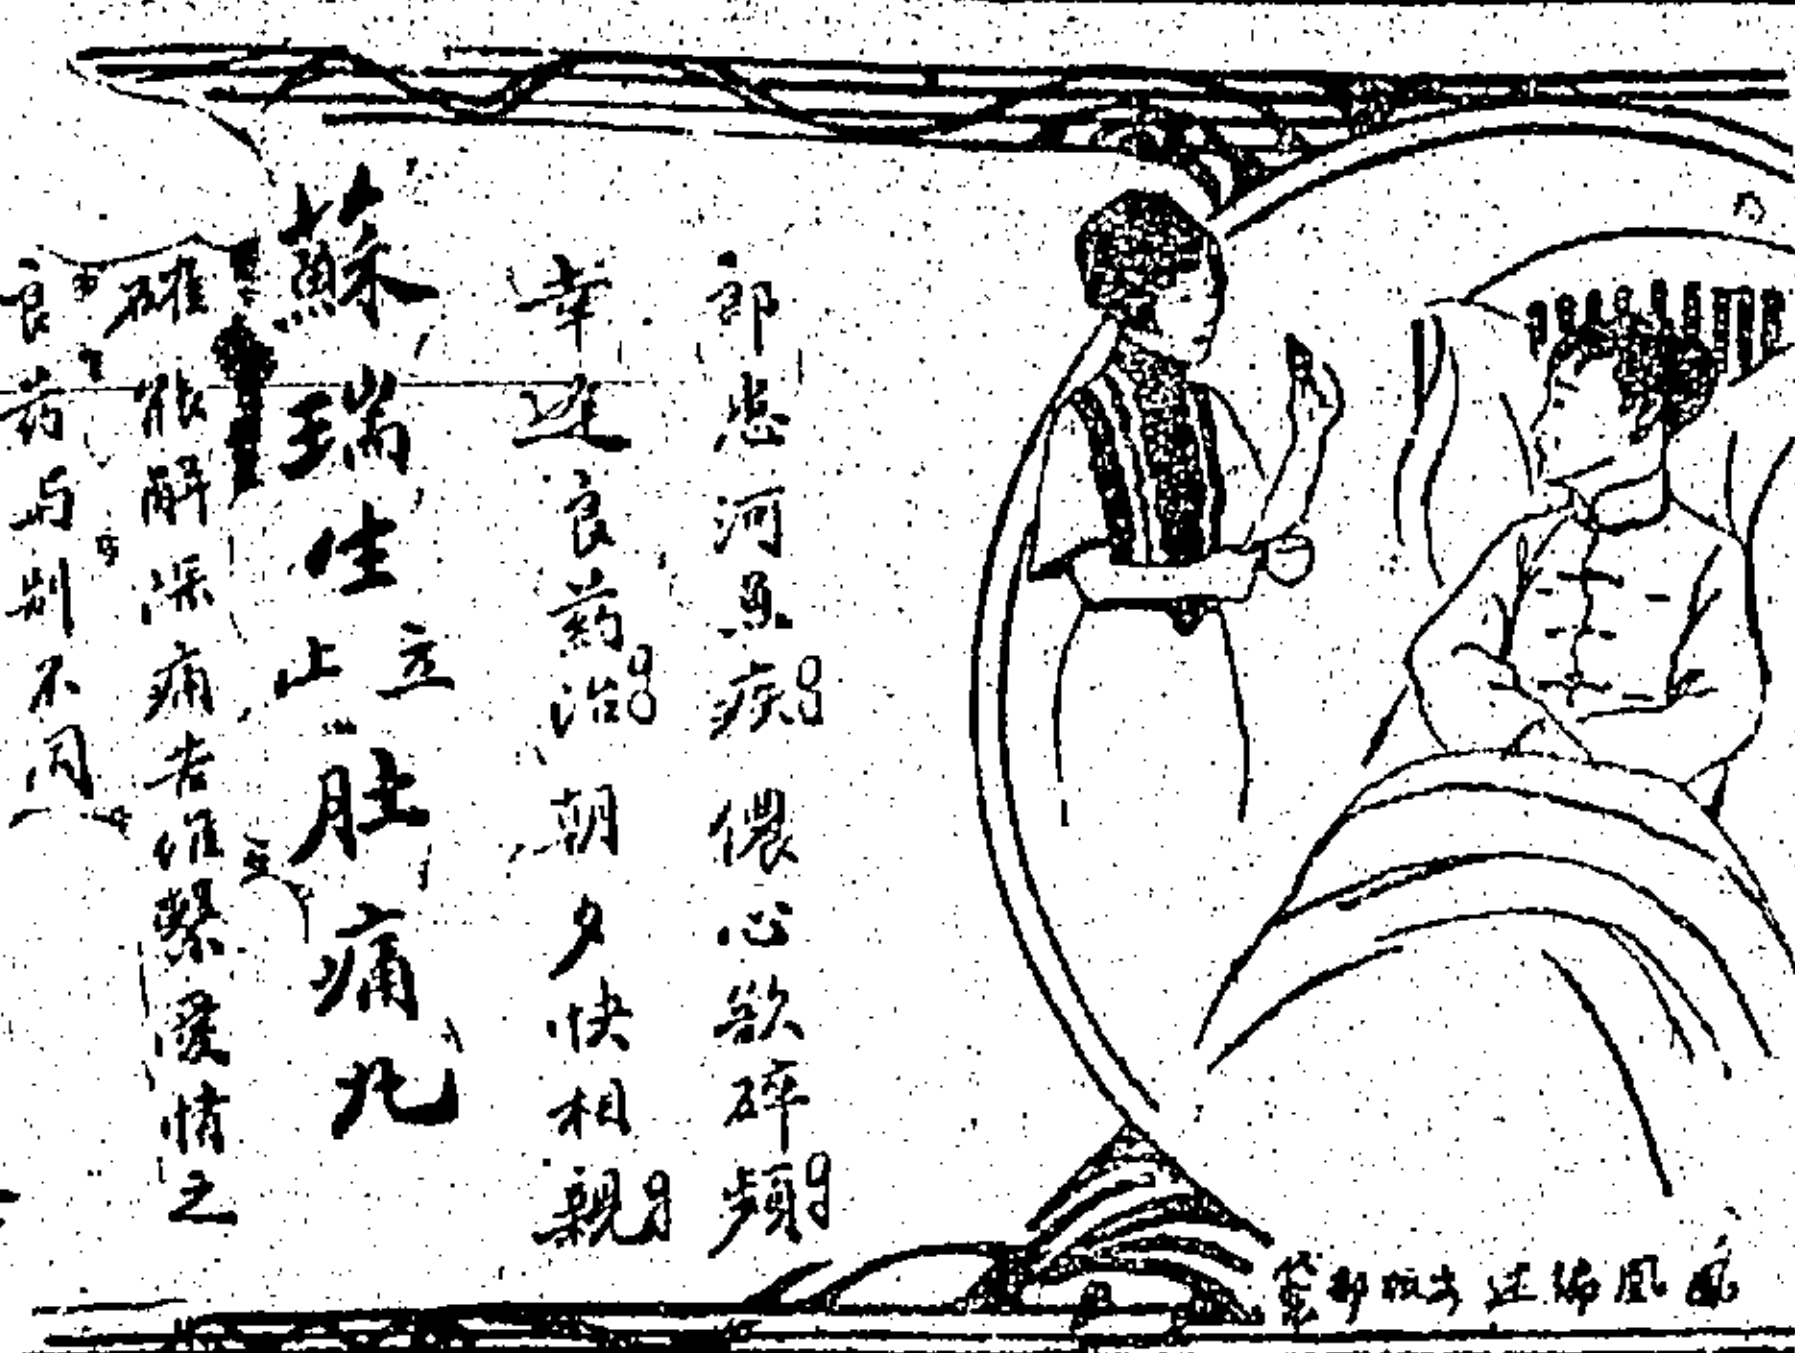 郎患河魚疾 儂心欲碎頻
幸逢良藥治 朝夕快相親
蘇瑞生立止肚痛丸
確能解深痛苦維繫愛情之
良药与别不同